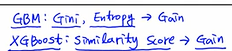 GBM: Gini, Entropy → Gain
XGBoost: Similarity Score → Gain